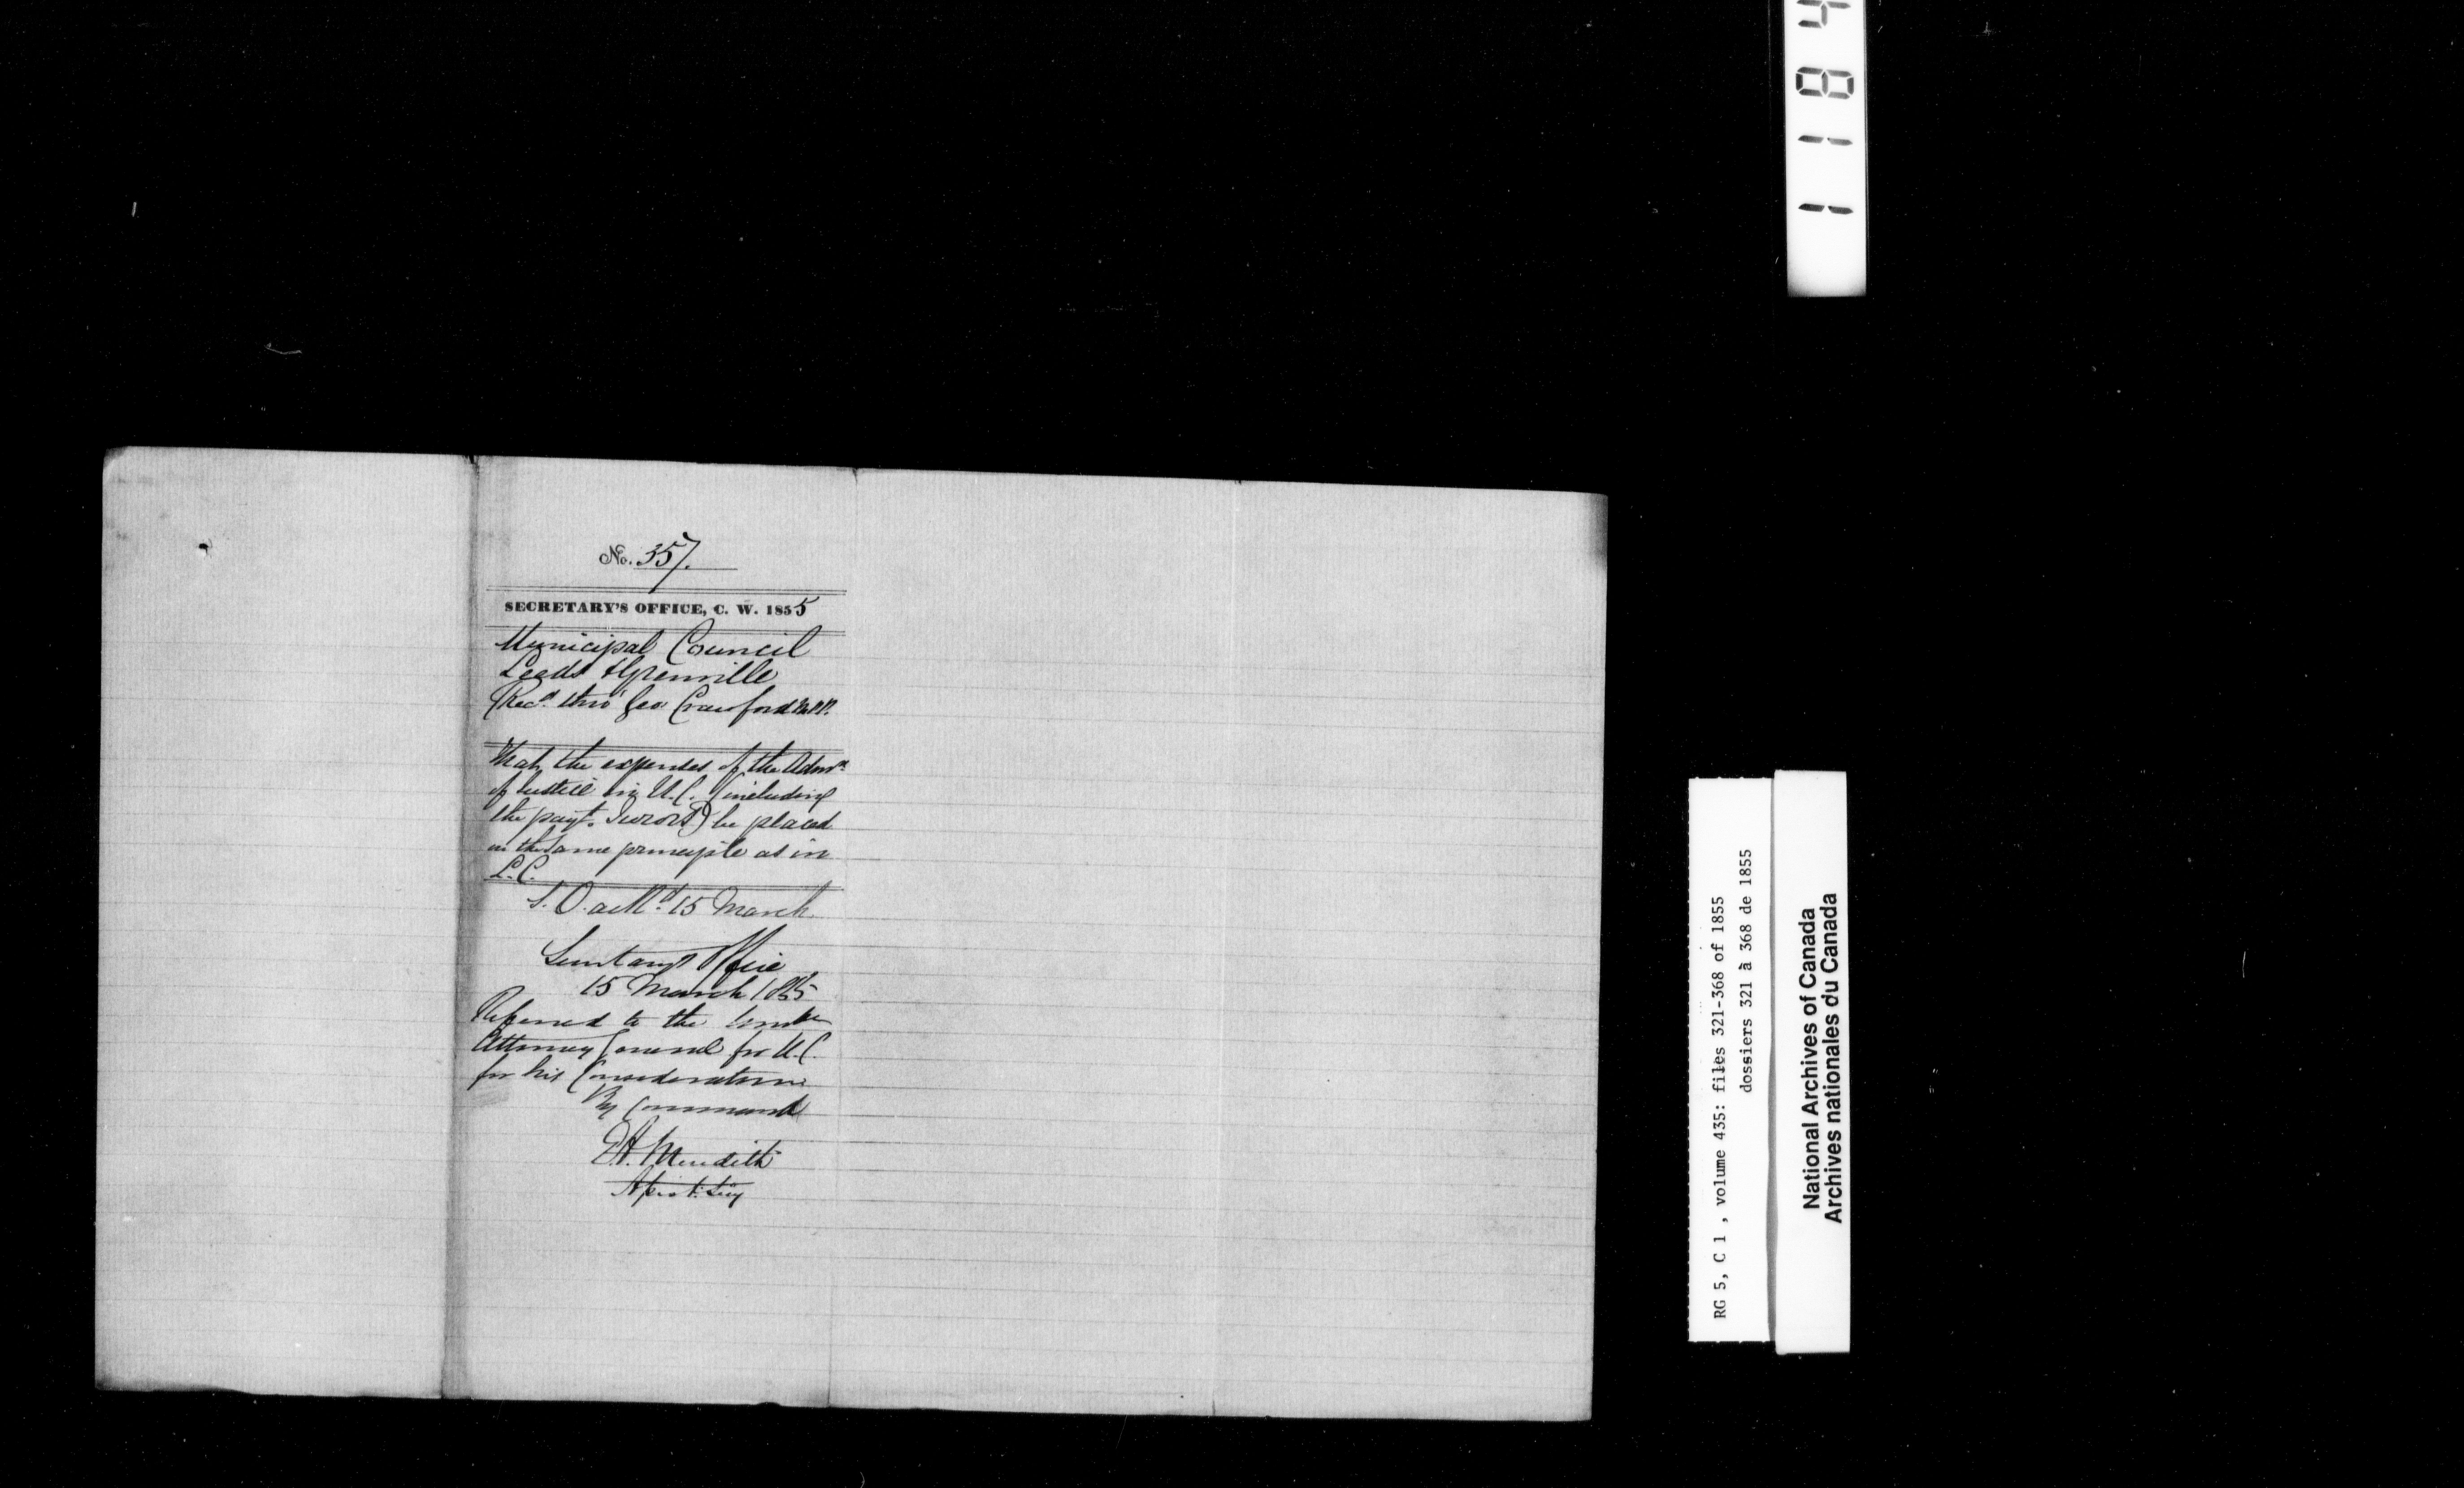 No. 357.
SECRETARY'S OFFICE, C. W. 1855
Municipal Council
Leeds & Grenville
(Recd. thro' Geo Crawford M.P.P.
That the expenses of the Admn.
of Justice in U.C. (including
the payt. Jurors) be placed
on the same principle as in
L.C.
L. O. ackd. 15 March
Secretary's Office
15 March 1855
Referred to the Honble
Attorney General for U.C.
for his Consideration
By Command
E.A. Meredith
Assist. Secy
1184
RG 5, C 1, volume 435: files 321-368 of 1855
dossiers 321 à 368 de 1855
National Archives of Canada
Archives nationales du Canada